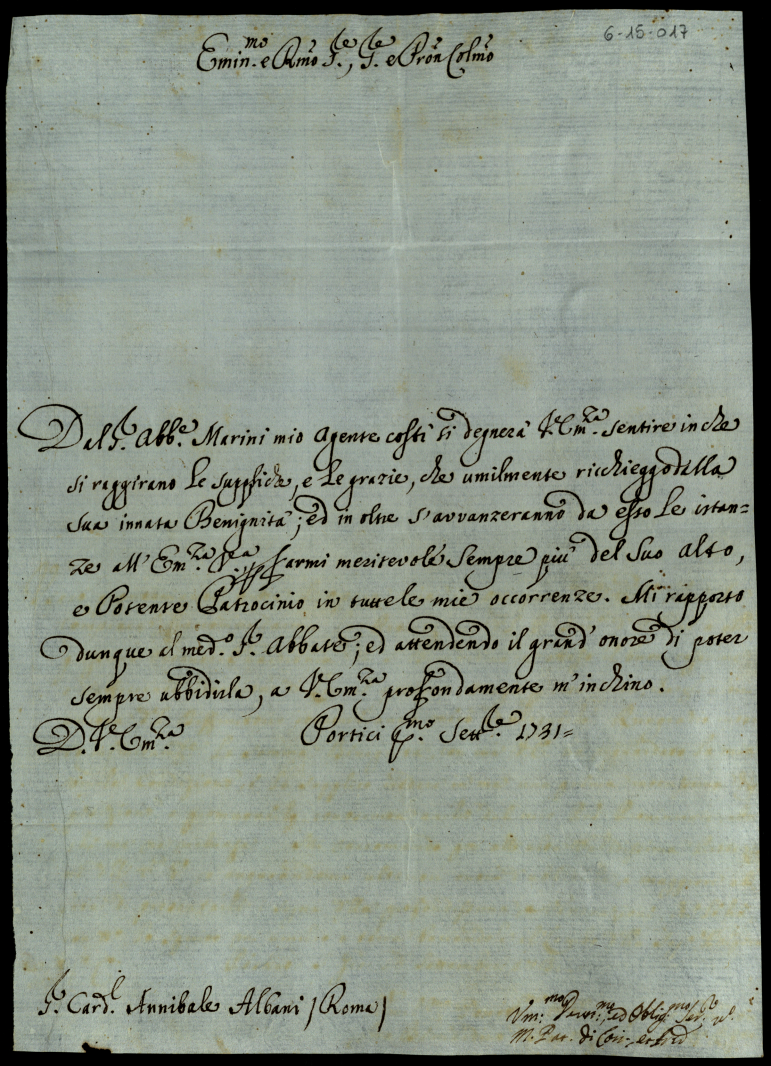 6-15-017
Emin.mo e Rmo S.re, S.re e Pron Colmo
Dal S.r Abb.e Marini mio Agente costì si degnerà V. Em.za sentire in che
si raggirano le suppliche, e le grazie, che umilmente ricchieggo dalla
sua innata Benignità; ed in oltre s'avvanzeranno da esso le istan=
ze all' Em.za V.ra farmi meritevole sempre più del suo alto,
e Potente Patrocinio in tutte le mie occorrenze. Mi rapporto
dunque al med.o S.r Abbate; ed attendendo il grand' onore di poter
sempre ubbidirla, a V. Em.za profondamente m'inchino.
D. V. Em.za Portici p.mo Sett.re 1731=
S.r Card.l Annibale Albani / Roma /
Um.mo Devot.mo ed Oblig.mo Ser.re